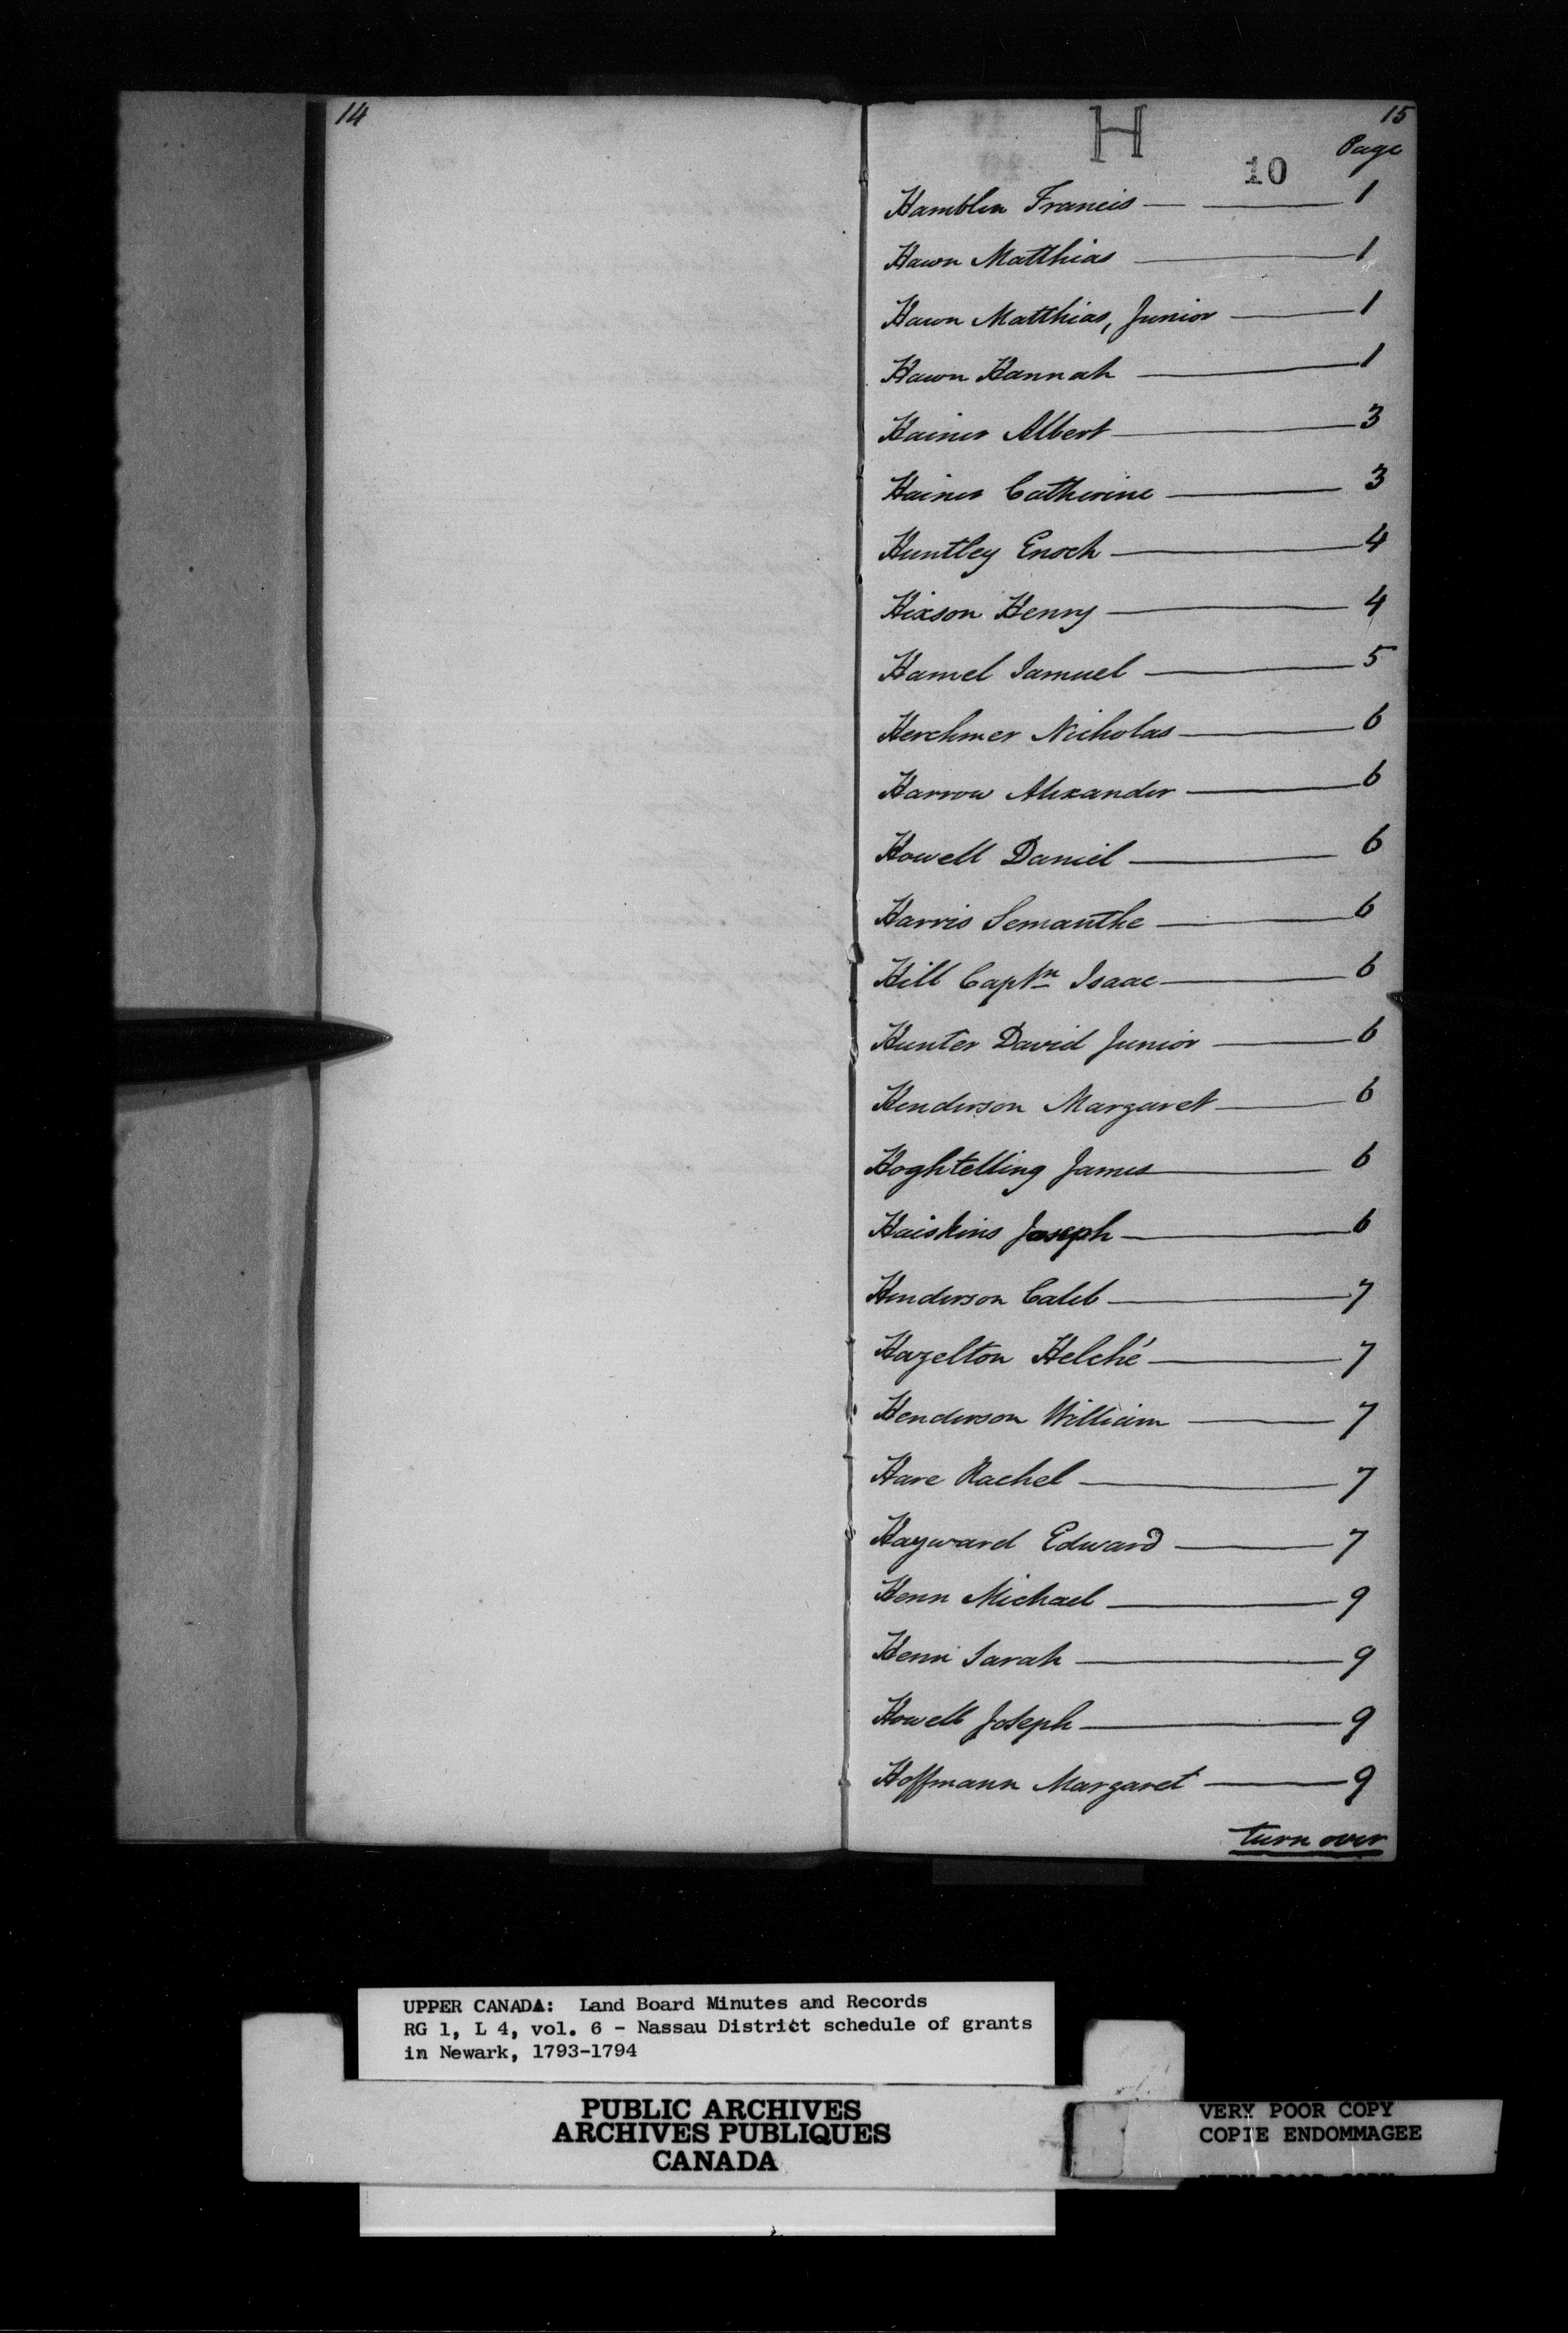 14
H
15
Page
10
Hamblin Francis — 1
Hawn Matthias — 1
Hawn Matthias, Junior — 1
Hawn Hannah — 1
Hainer Albert — 3
Hainer Catherine — 3
Huntley Enoch — 4
Hixson Henry — 4
Hamel Samuel — 5
Herchmer Nicholas — 6
Harrow Alexander — 6
Howell Daniel — 6
Harris Semanthe — 6
Hill Captn Isaac — 6
Hunter David Junior — 6
Henderson Margaret — 6
Hoghtelling James — 6
Haiskins Joseph — 6
Henderson Caleb — 7
Hazelton Helché — 7
Henderson William — 7
Hare Rachel — 7
Hayward Edward — 7
Henn Michael — 9
Henn Sarah — 9
Howell Joseph — 9
Hoffmann Margaret — 9
turn over
UPPER CANADA: Land Board Minutes and Records
RG 1, L 4, vol. 6 - Nassau District schedule of grants
in Newark, 1793-1794
PUBLIC ARCHIVES
ARCHIVES PUBLIQUES
CANADA
VERY POOR COPY
COPIE ENDOMMAGEE
VERY POOR COPY